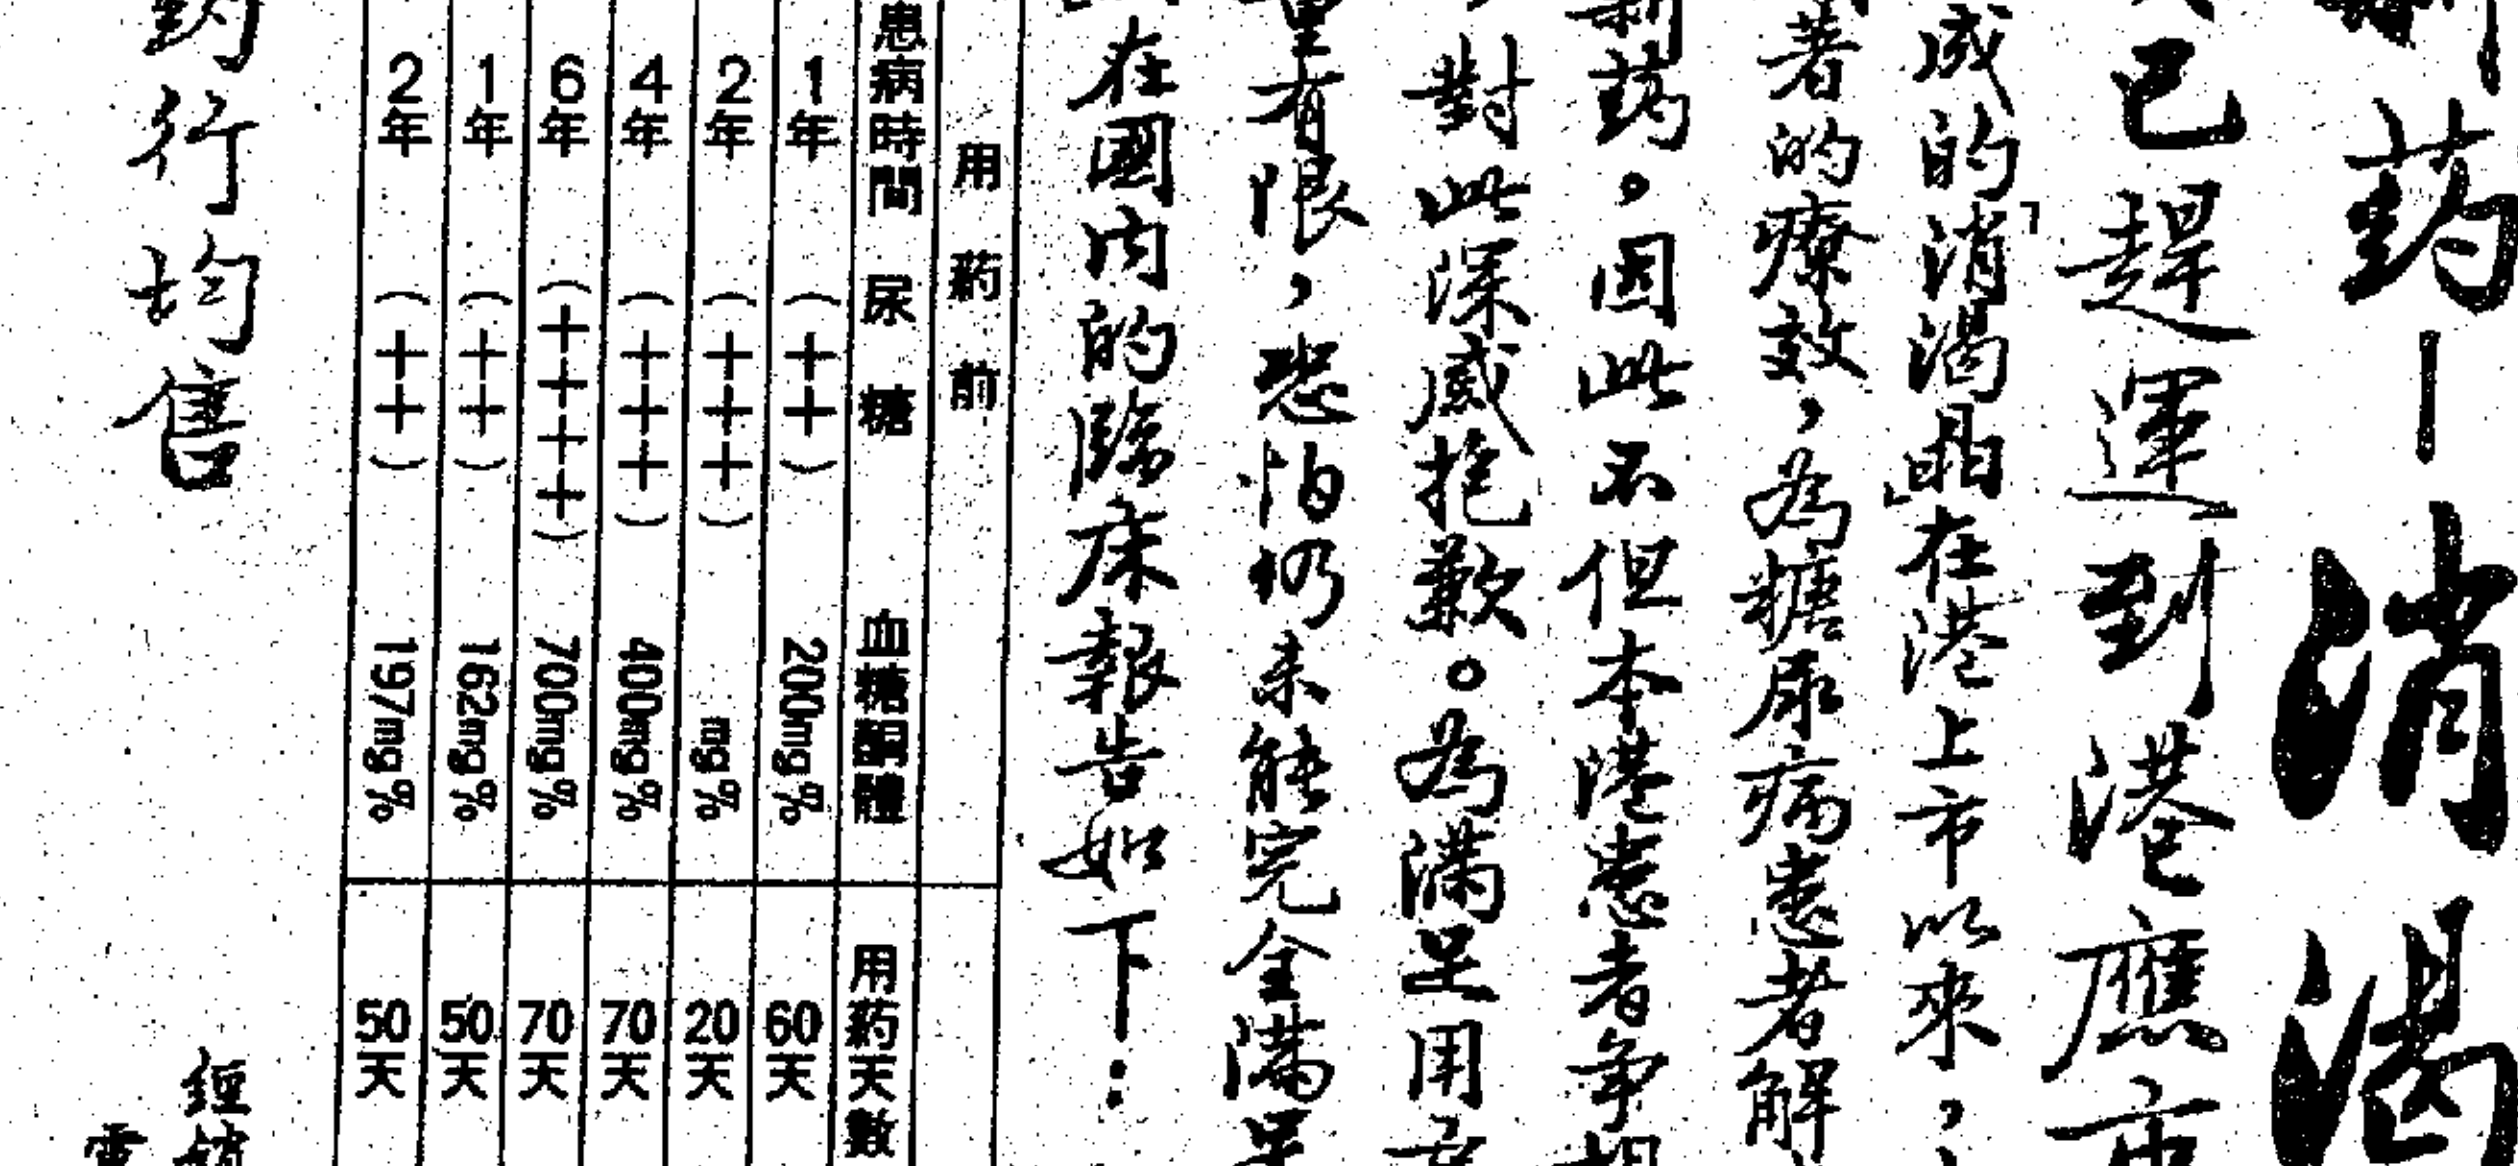 葯－消渴
已趕運到港應市
成的「消渴晶在港上市以來，
著的療效，為糖尿病患者解
新葯。因此不但本港患者爭相
對此深感抱歉。為滿足用
量有限，恐怕仍未能完全滿足
在國内的臨床報告如下：
用葯前
患病時間 尿糖 血糖酮體 用葯天數
1年 (++) 200mg% 60天
2年 (+++) mg% 20天
4年 (+++) 400mg% 70天
6年 (++++) 700mg% 70天
1年 (++) 162mg% 50天
2年 (++) 197mg% 50天
葯行均售
經銷
電